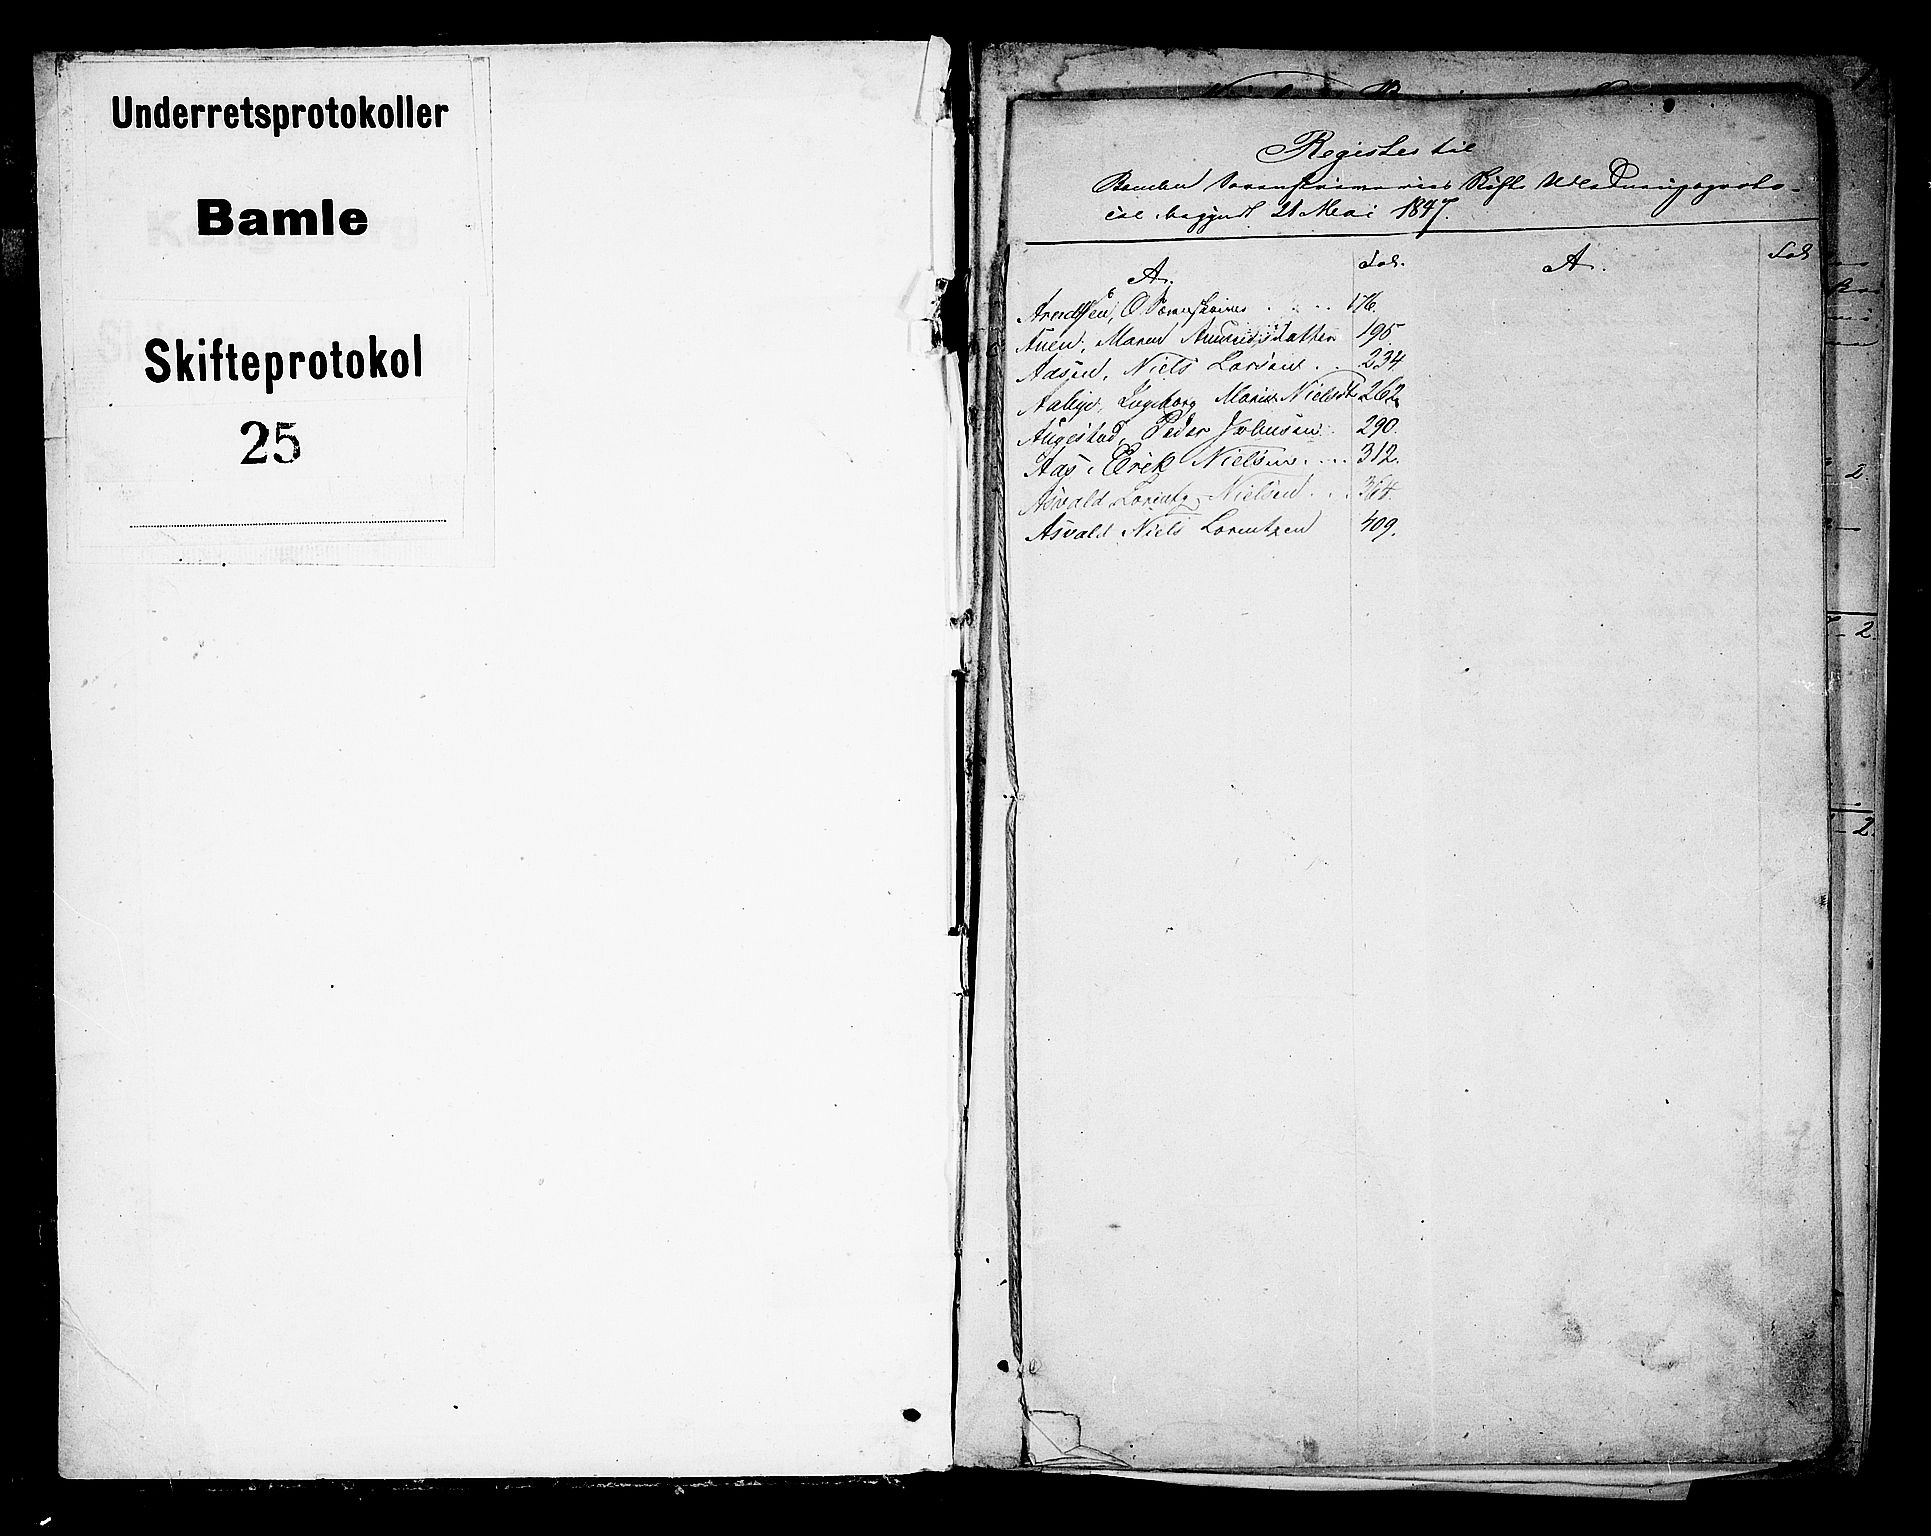 Underretsprotokoller
Bamle
Skifteprotokol
25
Register til
Bamble Sorenskriveries Skifte Udlodningsproto-
col begyndt 21 Mai 1847.
A. Fol. A. Fol
Arndtsen, O Sorenskriver . . . . 176.
Auen, Maren Amundsdatter 195.
Aasen, Niels Larsen . . 234.
Aabye, Ingeborg Marie Nielsdtr 262
Augestad, Peder Johnsen . 290.
Aas, Erik Nielsen . . . . 312.
Asvald Lorentz Nielsen . . . 364.
Asvald Niels Lorentzen 409.